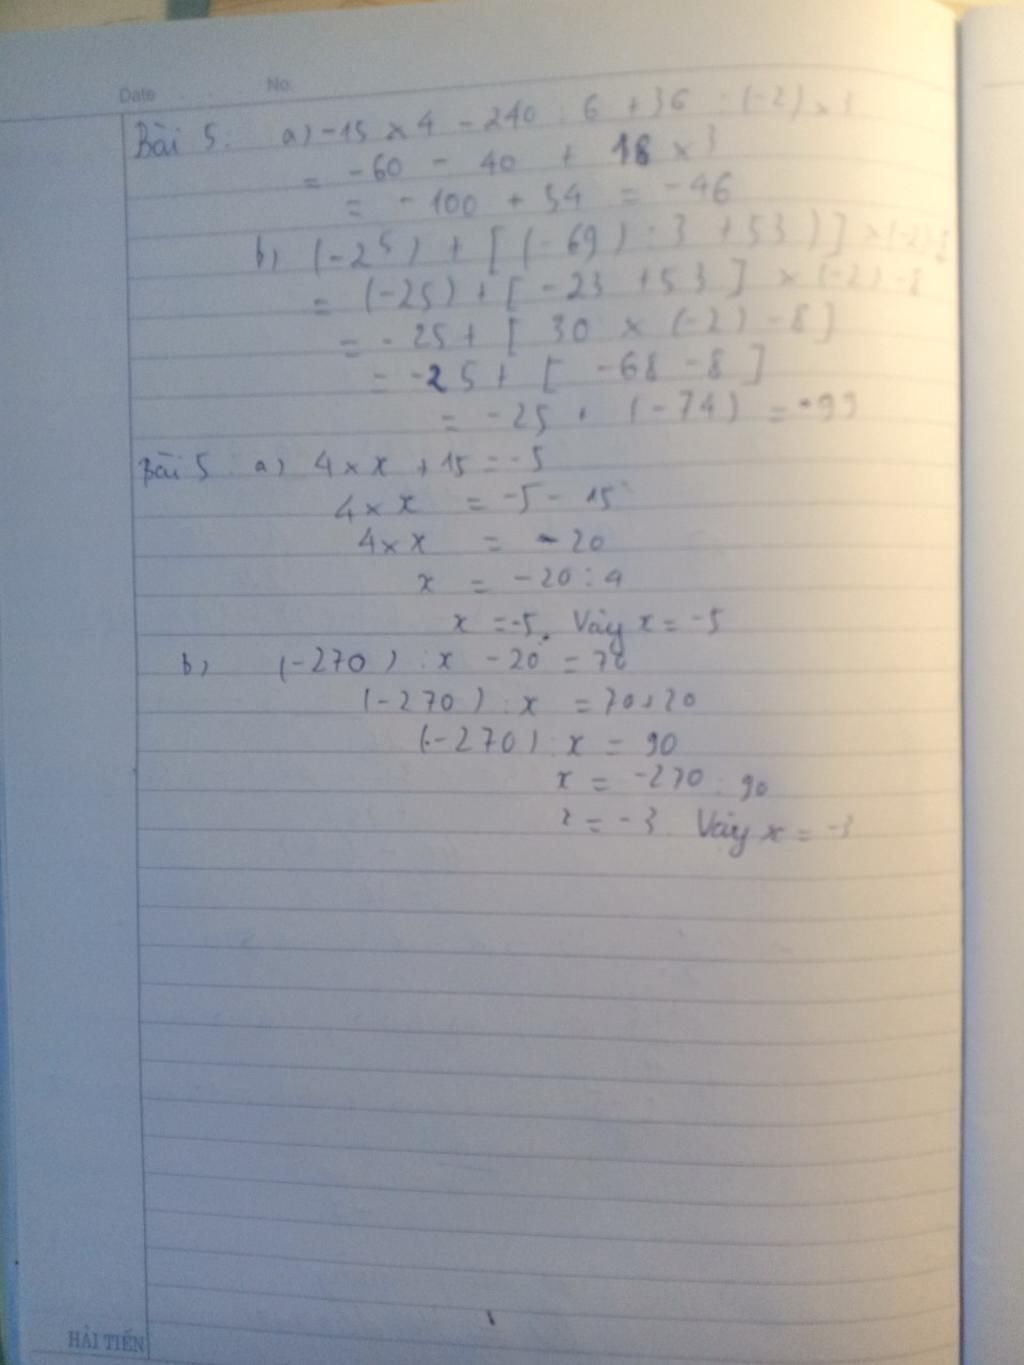 Date No
Bài 5. a) -15 x 4 - 240 : 6 + 36 : (-2) x 3
= -60 - 40 + 18 x 3
= -100 + 54 = -46
b) (-25) + [(-69) : 3 + 53)] x (-2)
= (-25) + [ -23 + 53 ] x (-2) - 8
= -25 + [ 30 x (-2) - 8]
= -25 + [ -68 - 8 ]
= -25 + (-74) = -99
Bài 5 a) 4 x x + 15 = -5
4 x x = -5 - 15
4 x x = -20
x = -20 : 4
x = -5. Vậy x = -5
b) (-270) : x - 20 = 70
(-270) : x = 70 + 20
(-270) : x = 90
x = -270 : 90
x = -3. Vậy x = -3
HẢI TIẾN